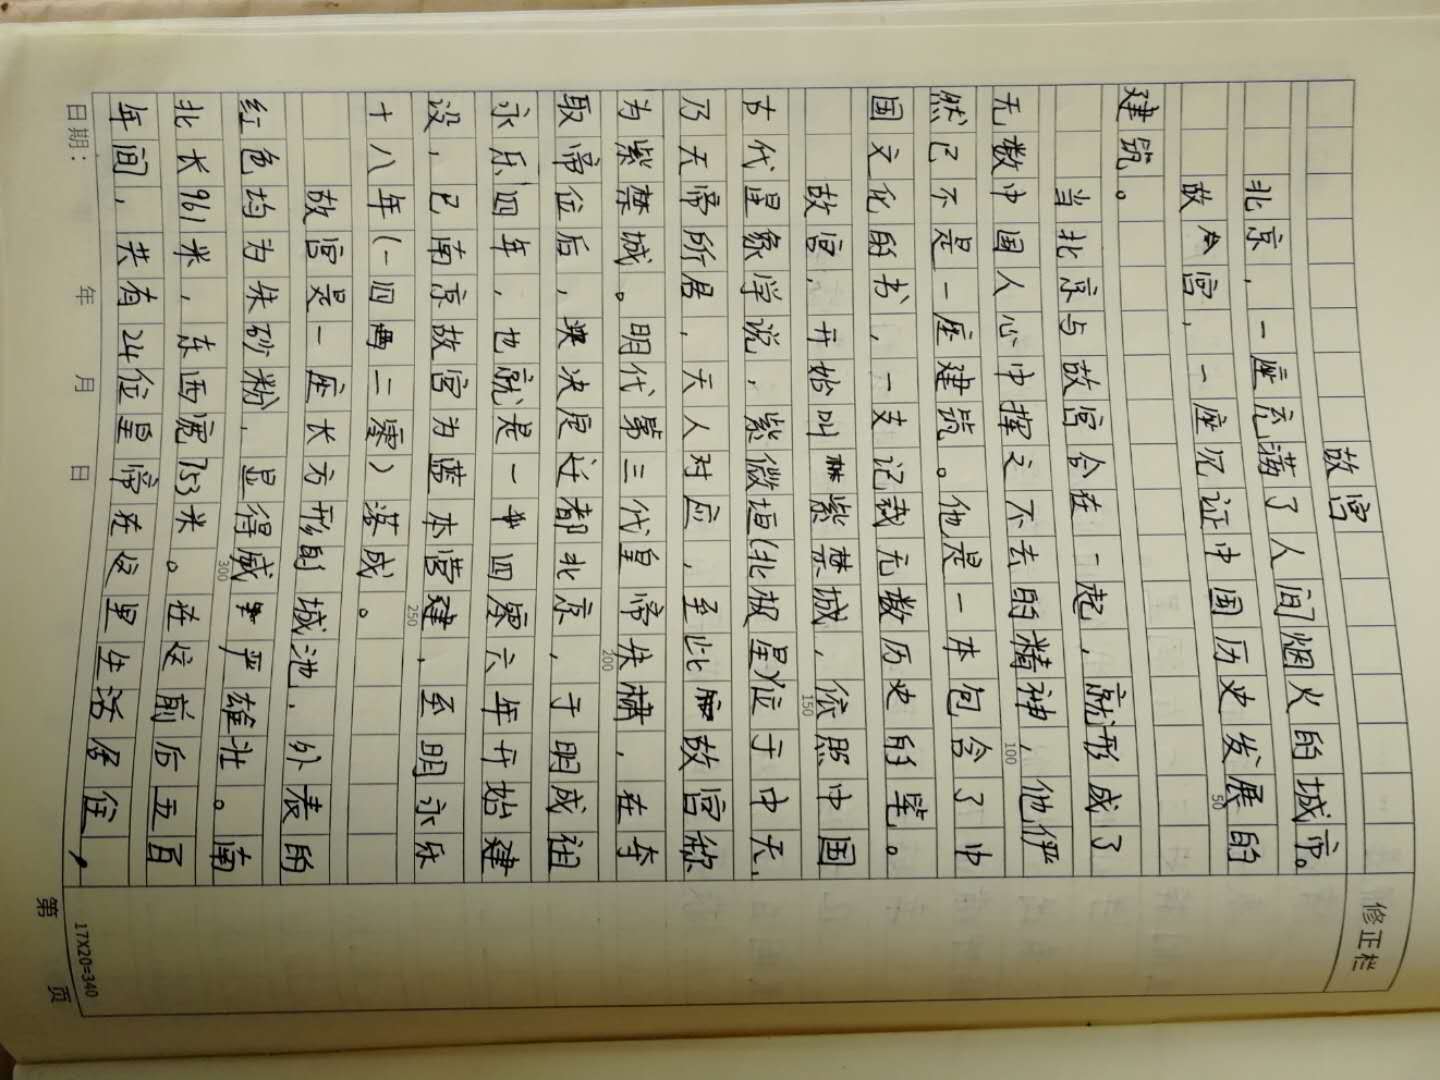 故宫
北京，一座充满了人间烟火的城市。
故宫，一座见证中国历史发展的
建筑。
当北京与故宫合在一起，就形成了
无数中国人心中挥之不去的精神，他俨
然已不是一座建筑。他是一本包含了中
国文化的书，一支记载无数历史的笔。
故宫，开始叫紫禁城，依照中国
古代星象学说，紫微垣(北极星)位于中天，
乃天帝所居，天人对应，至此故宫称
为紫禁城。明代第三代皇帝朱棣，在夺
取帝位后，决定迁都北京，于明成祖
永乐四年，也就是一四零六年开始建
设，已南京故宫为蓝本营建，至明永乐
十八年(一四二零)落成。
故宫是一座长方形的城池，外表的
红色均为朱砂粉，显得威严雄壮。南
北长961米，东西宽753米。在这前后五百
年间，共有24位皇帝在这里生活居住，
修正栏
50
100
150
200
250
300
日期： 年 月 日
17X20=340
第 页